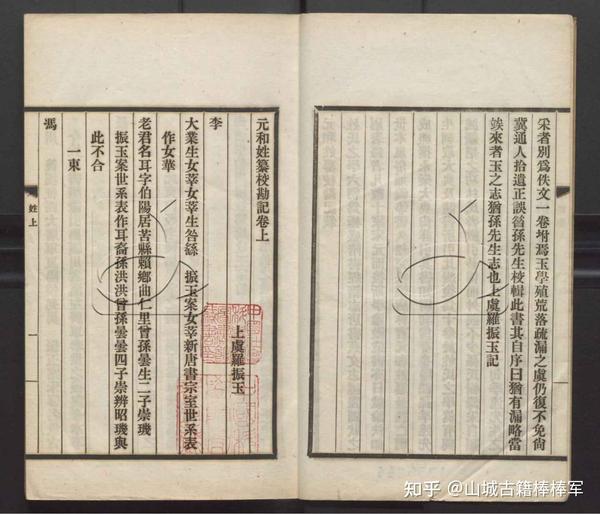 采者別爲佚文一卷坿焉玉學殖荒落疏漏之虞仍復不免尙
冀通人拾遺正誤孫先生校輯此書其自序曰猶有漏略當
竢來者玉之志猶孫先生志也上虞羅振玉記
元和姓纂校勘記卷上
上虞羅振玉
李
大業生女莘女莘生咎繇 振玉案女莘新唐書宗室世系表
作女華
老君名耳字伯陽居苦縣賴鄕曲仁里曾孫曇生二子崇璣
振玉案世系表作耳裔孫洪洪曾孫曇曇四子崇辨昭璣與
此不合
一東
馮
姓上
一
知乎 @山城古籍棒棒军